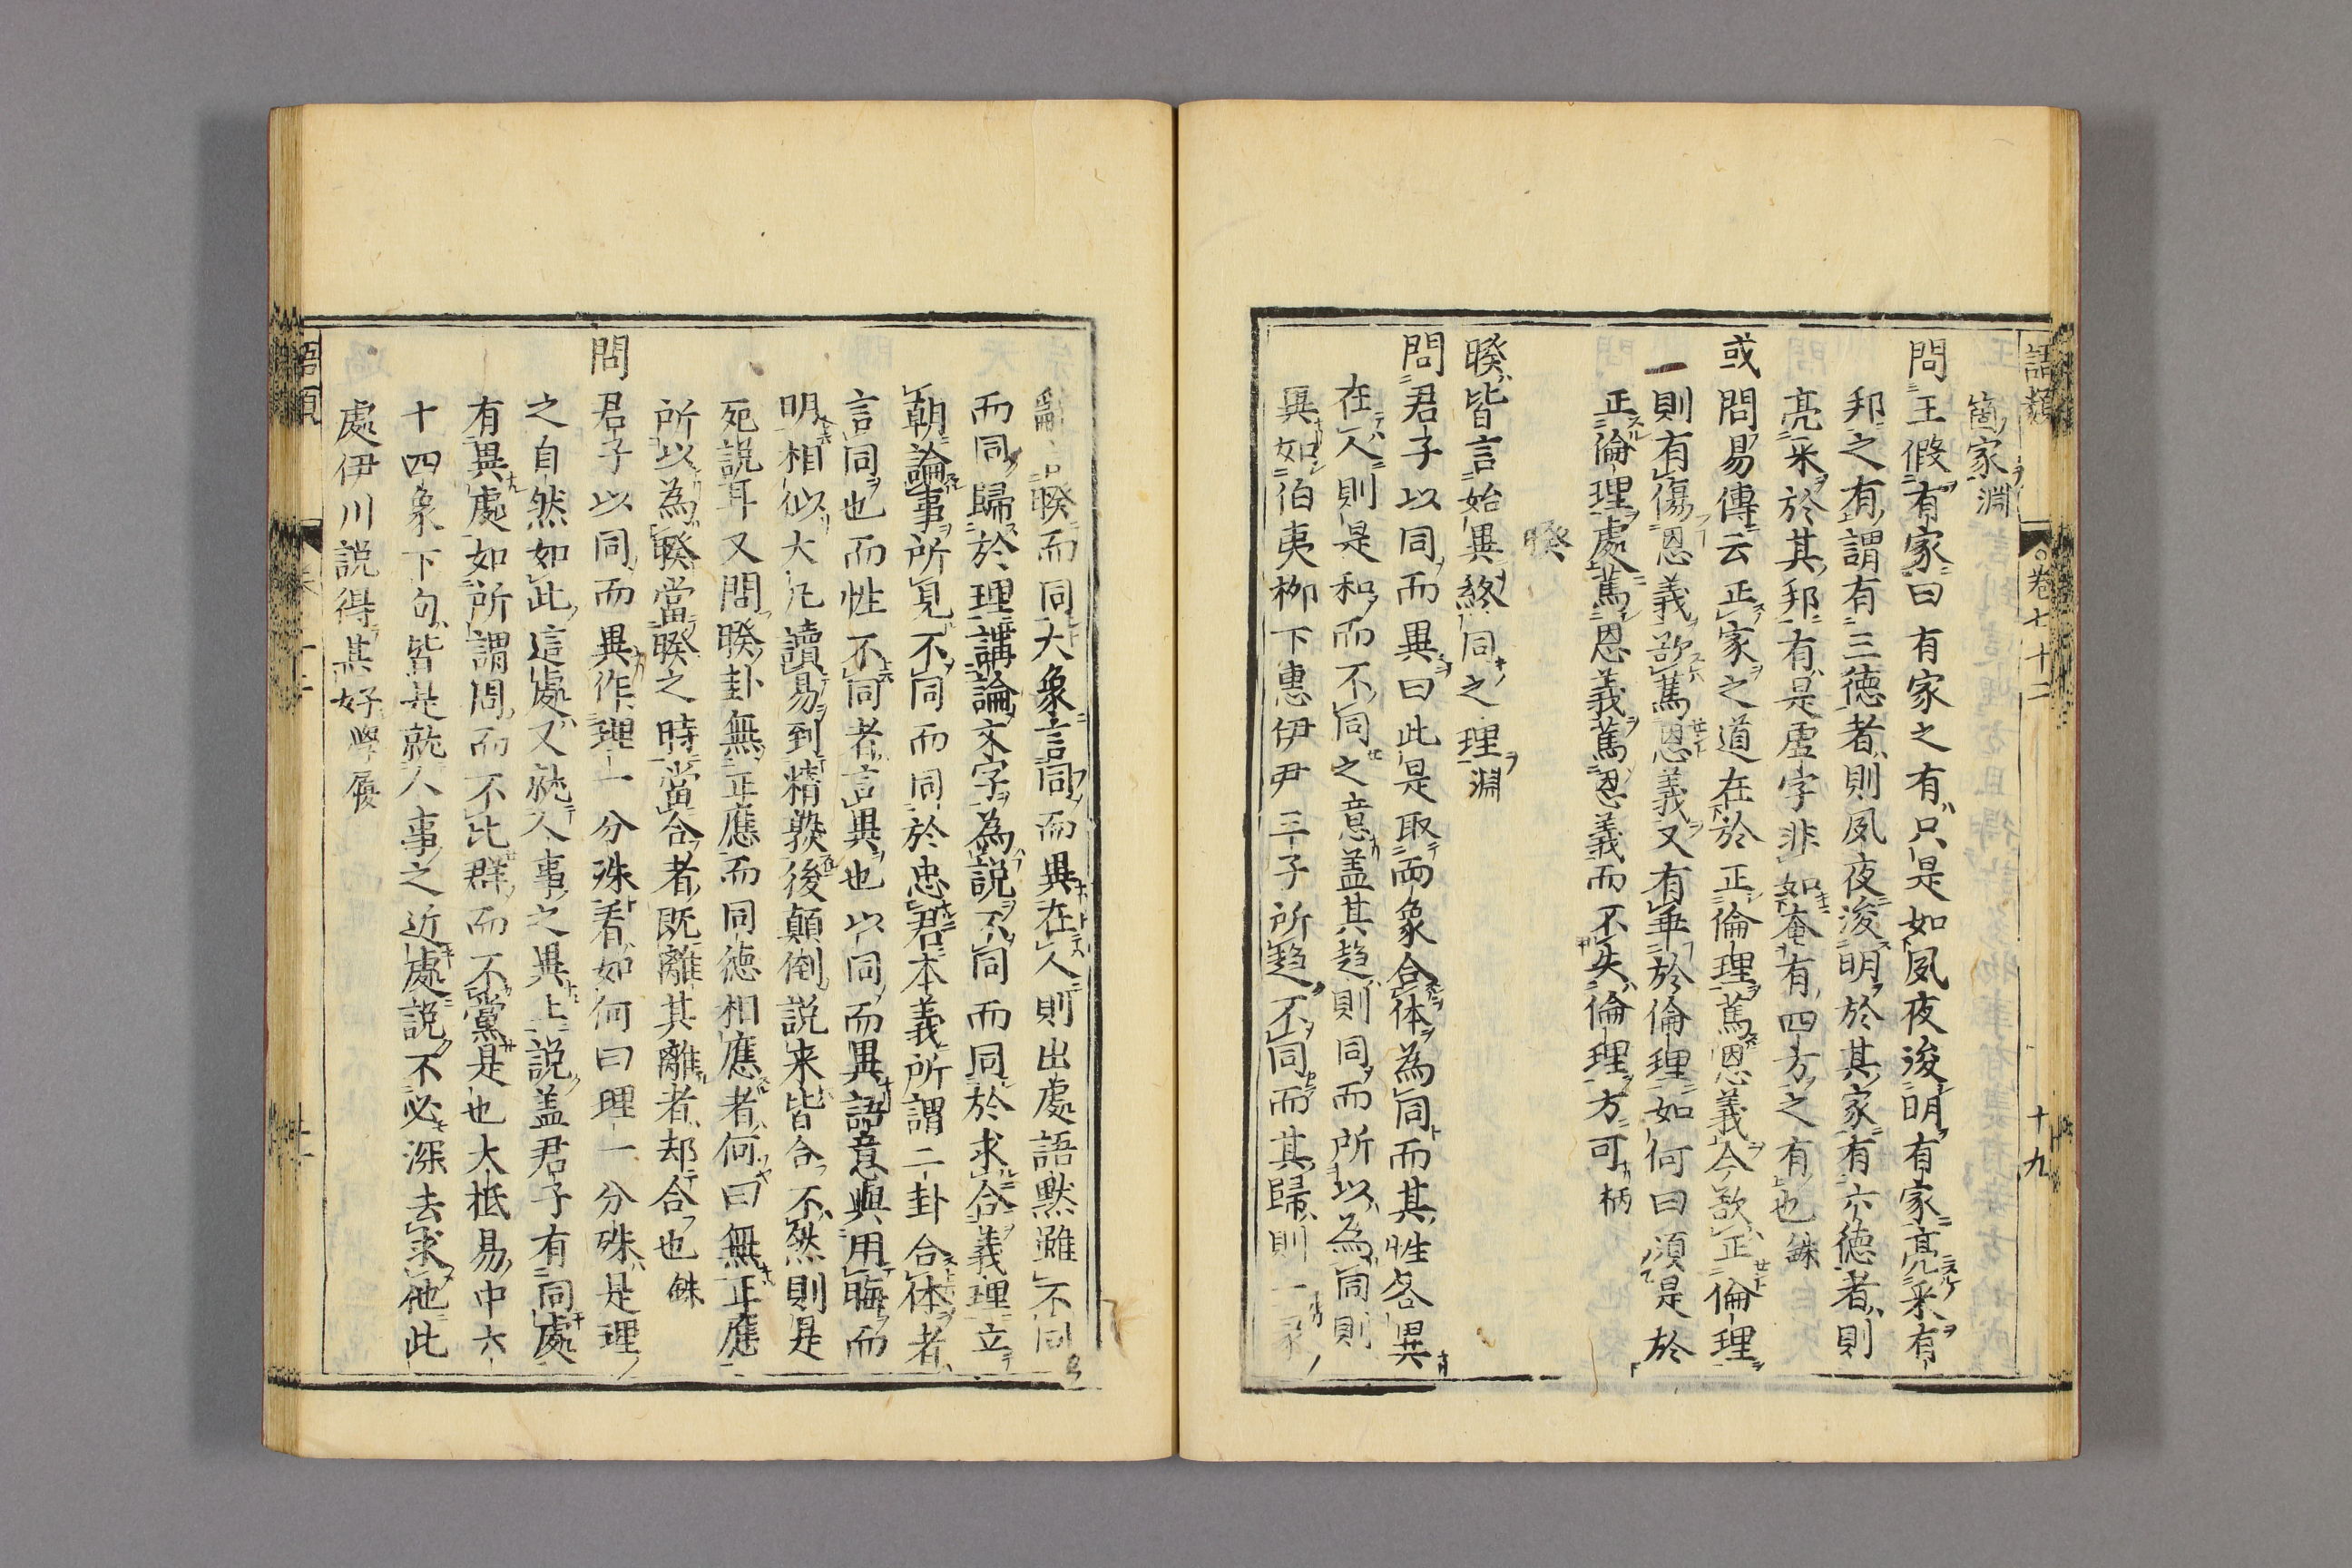 語類
○卷七十二
十九
箇家淵
問王假有家曰有家之有只是如夙夜浚明有家亮采有
邦之有謂有三德者則夙夜浚明於其家有六德者則
亮采於其邦有是虛字非如奄有四方之有也銖
或問易傳云正家之道在於正倫理篤恩義今欲正倫理
一則有傷恩義欲篤恩義又有乖於倫理如何曰須是於
正倫理處篤恩義篤恩義而不失倫理方可柄
睽
睽皆言始異終同之理淵
問君子以同而異曰此是取兩象合体為同而其性各異
在人則是和而不同之意盖其趍則同而所以為同則
異如伯夷柳下惠伊尹三子所趍不同而其歸則一
辭言睽而同大象言同而異在人則出處語默雖不同
而同歸於理講論文字為説不同而同於求合義理立
朝論事所見不同而同於忠君本義所謂二卦合体者
言同也而性不同者言異也以同而異語意與用晦而
明相似大凢讀易到精熟後顛倒説来皆合不然則是
死説耳又問睽卦無正應而同德相應者何曰無正應
所以為睽當睽之時當合者既離其離者却合也銖
問君子以同而異作理一分殊看如何曰理一分殊是理
之自然如此這處又就人事之異上説盖君子有同處
有異處如所謂周而不比群而不黨是也大抵易中六
十四象下句皆是就人事之近處説不必深去求他此
處伊川説得甚好學履
語類